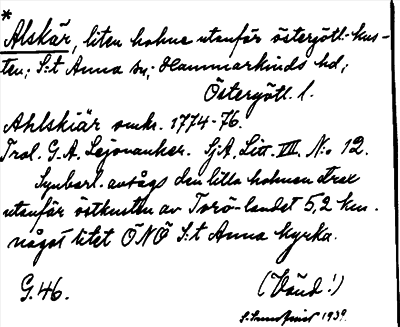 *
Alskär, liten holme utanför östergötl.-kus-
ten; S:t Anna sn; Hammarkinds hd;
Östergötl. l.
Ahlskiär omkr. 1774-76.
Trol. G.A. Lejonanker. SjA, Litt. VII No 12.
Synbarl. avsågs den lilla holmen strax
utanför östkusten av Torö-landet 5,2 km.
något litet ÖNÖ S:t Anna kyrka.
G.46. (Vänd!)
1939.